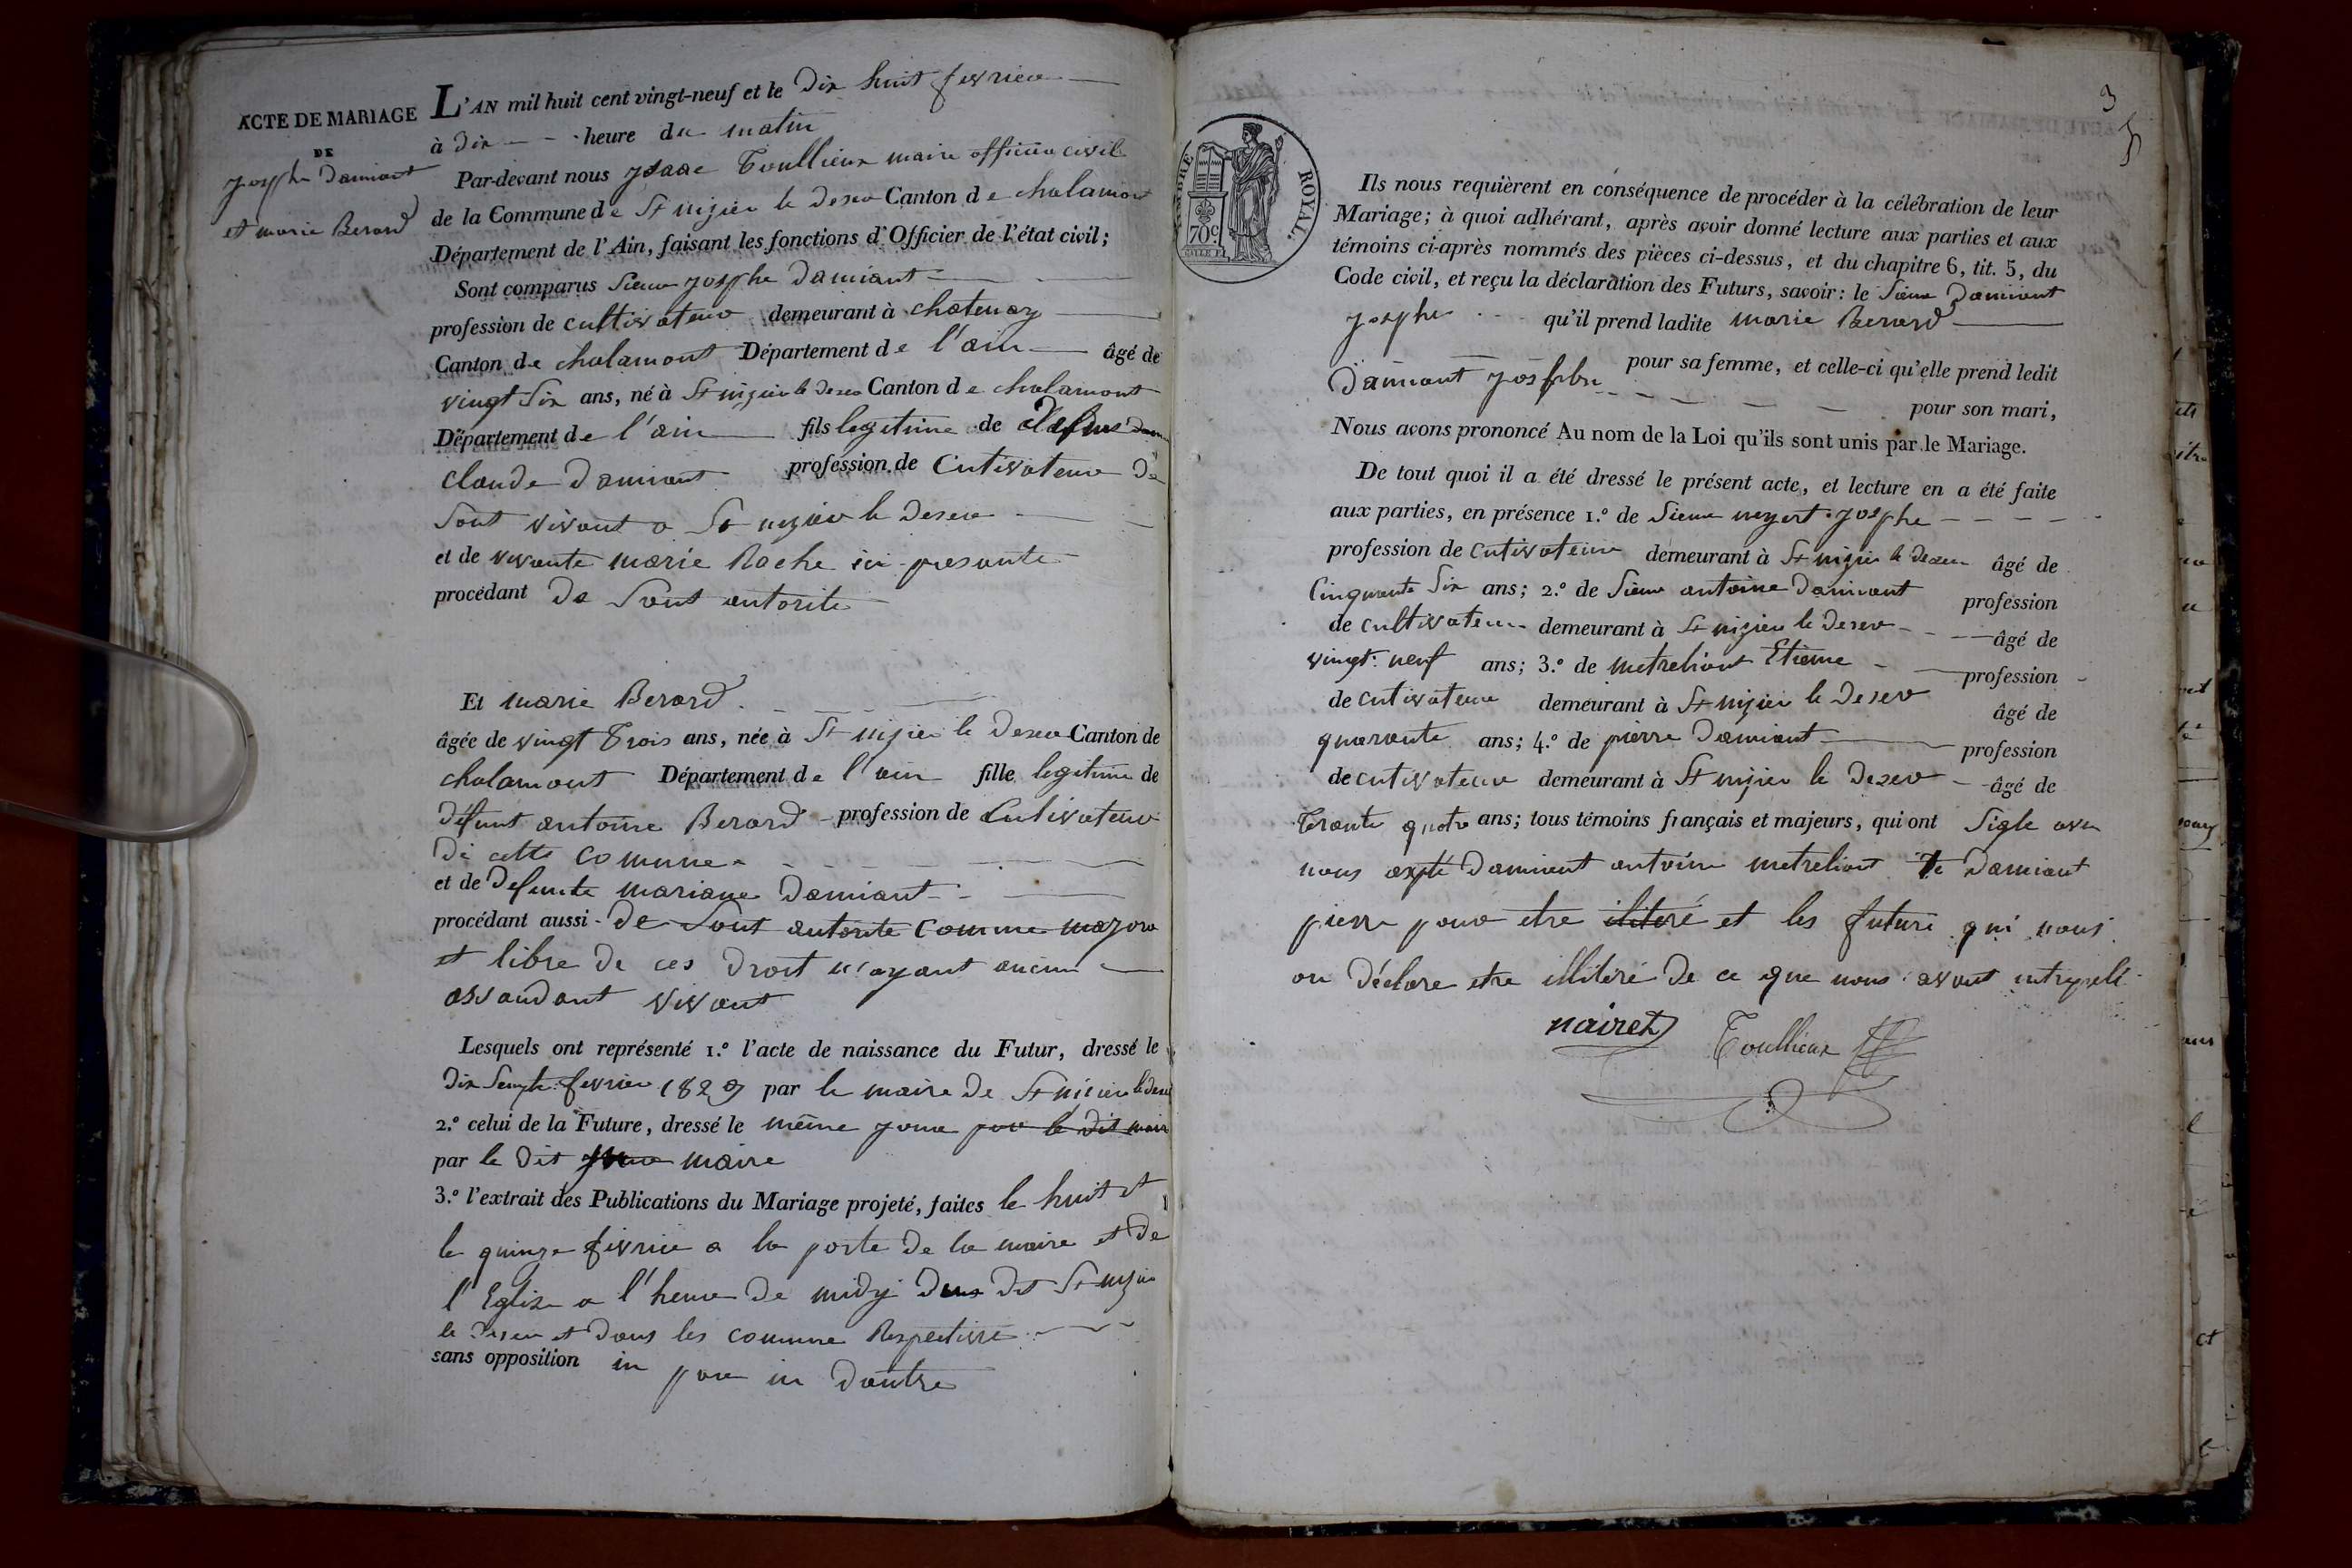 ACTE DE MARIAGE
DE
Josphe Damiant
et marie Berard
L'AN mil huit cent vingt-neuf et le Dix huit fevrier
à Dix heure du matin
Par-devant nous Isaac Toullieux maire officier civil
de la Commune de St nizier le deser Canton de chalamont
Département de l'Ain, faisant les fonctions d'Officier de l'état civil;
Sont comparus Sieur Josphe Damiant
profession de cultivateur demeurant à chatenay
Canton de chalamont Département de l'ain âgé de
vingt Six ans, né à St nizier le deser Canton de chalamont
Département de l'ain fils legitime de
claude Damiant profession de Cutivateur De
Sont vivant a St nizier le Deser
et de vivante marie Roche ici presante
procédant De Sont autorite
Et marie Berard
âgée de vingt Trois ans, née à St nizier le Deser Canton de
chalamont Département de l'ain fille legitime de
Défunt antoine Berard profession de Cutivateur
De cette comune
et de Defunte mariane Damiant
procédant aussi De Sont autorite Comme majore
et libre De ces Droit n'ayant aucun
assandant vivant
Lesquels ont représenté 1.º l'acte de naissance du Futur, dressé le
Dix Sempte fevrier 1829 par le maire De St nizier le deser
2.º celui de la Future, dressé le même jour par le dit mair
par le Dit maire
3.º l'extrait des Publications du Mariage projeté, faites le huit et
le quinze fevrier a la porte De la maire et De
l'Eglize a l'heure De midy Dit St nizier
le Deser et Dans les comune Respective
sans opposition in pour in Dautre
3
TIMBRE ROYAL.
70c
Ils nous requièrent en conséquence de procéder à la célébration de leur
Mariage; à quoi adhérant, après avoir donné lecture aux parties et aux
témoins ci-après nommés des pièces ci-dessus, et du chapitre 6, tit. 5, du
Code civil, et reçu la déclaration des Futurs, savoir: le Sieur Damiant
Josphe qu'il prend ladite marie Berard
pour sa femme, et celle-ci qu'elle prend ledit
Damiant Josphe pour son mari,
Nous avons prononcé Au nom de la Loi qu'ils sont unis par le Mariage.
De tout quoi il a été dressé le présent acte, et lecture en a été faite
aux parties, en présence 1.º de Sieur Josphe
profession de Cutivateur demeurant à St nizier le deser âgé de
Cinquante Six ans; 2.º de Sieur antoine Damiant profession
de cultivateur demeurant à St nizier le Deser âgé de
vingt neuf ans; 3.º de metreliant Etieme profession
de cutivateur demeurant à St nizier le Deser âgé de
quarante ans; 4.º de pierre Damiant profession
de cutivateur demeurant à St nizier le Dezer âgé de
Trante quatre ans; tous témoins français et majeurs, qui ont Sigle avec
nous exepté Damiant antoine metreliant Damiant
pierre pour etre iliteré et les futuré qui nous
on Déclare etre illiteré De ce que nous avont intrepelé
nairet Toullieux